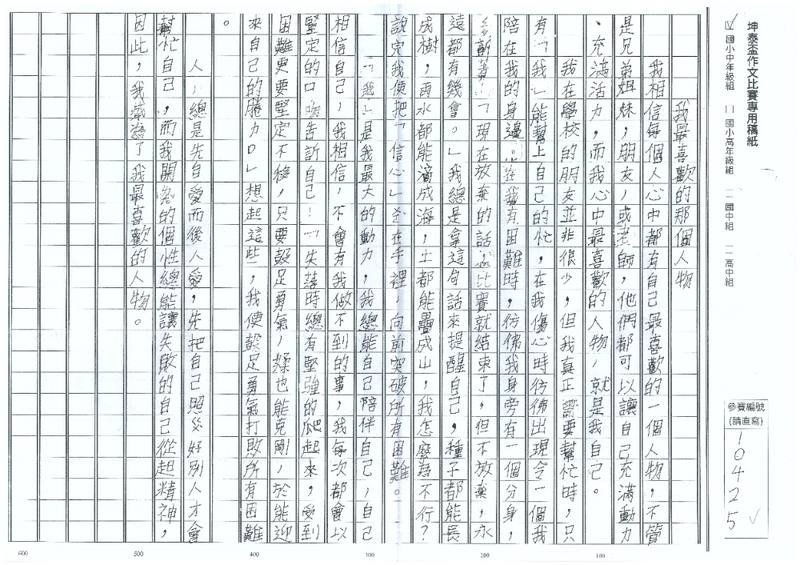 坤泰盃作文比賽專用稿紙
國小中年級組 國小高年級組 國中組 高中組
參賽編號
(請直寫)
10425
我最喜歡的那個人物
我相信每個人心中都有自己最喜歡的一個人物,不管
是兄弟姐妹,朋友,或老師,他們都可以讓自己充滿動力
、充滿活力,而我心中最喜歡的人物,就是我自己。
我在學校的朋友並非很少,但我真正需要幫忙時,只
有「我」能幫上自己的忙,在我傷心時彷彿出現令一個我
陪在我的身邊。在我有困難時,彷彿我身旁有一個分身,
「現在放棄的話,比賽就結束了,但不放棄,永
遠都有幾會。」我總是拿這句話來提醒自己,種子都能長
成樹,雨水都能演成海,土都能疊成山,我怎麼話不行?
說完我便把「信心」在手裡,向前突破所有困難。
「我」是我最大的動力,我總能自己陪伴自己,自己
相信自己,我相信,不會有我做不到的事,我每次都會以
堅定的口吻告訴自己!「失落時總有堅強的爬起來,受到
困難更要堅定不移,只要鼓足勇氣,糅也能克剛,於能迎
來自己的勝力。」想起這些,我便鼓足勇氣打敗所有困難
。
人,總是先自愛而後人愛,先把自己照好別人才會
幫忙自己,而我開的個性總能讓失敗的自己從起精神,
因此,我成為了我最喜歡的人物。
600 500 400 300 200 100